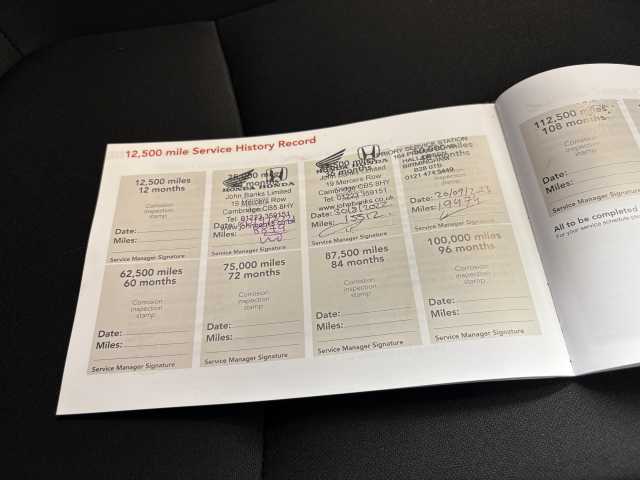 12,500 mile Service History Record
12,500 miles
12 months
Corrosion
inspection
stamp
Date:
Miles:
Service Manager Signature
HONDA HONDA
John Banks Limited
19 Mercers Row
Cambridge CB5 8HY
Tel: 01223 359151
www.johnbanks.co.uk
Date:
Miles:
Service Manager Signature
HONDA HONDA
John Banks Limited
19 Mercers Row
Cambridge CB5 8HY
Tel: 01223 359151
www.johnbanks.co.uk
Date:
Miles: 13312
PRIORY SERVICE STATION
BIRMINGHAM
B28 0TB
0121 474
inspection
stamp
Date: 20/09/2023
Miles: 19971
Service Manager Signature
62,500 miles
60 months
Corrosion
inspection
stamp
Date:
Miles:
Service Manager Signature
75,000 miles
72 months
Corrosion
inspection
stamp
Date:
Miles:
Service Manager Signature
87,500 miles
84 months
Corrosion
inspection
stamp
Date:
Miles:
Service Manager Signature
100,000 miles
96 months
Corrosion
inspection
stamp
Date:
Miles:
Service Manager Signature
112,500 miles
108 months
Corrosion
inspection
stamp
Date:
Miles:
Service Manager Signature
All to be completed
For your service schedule